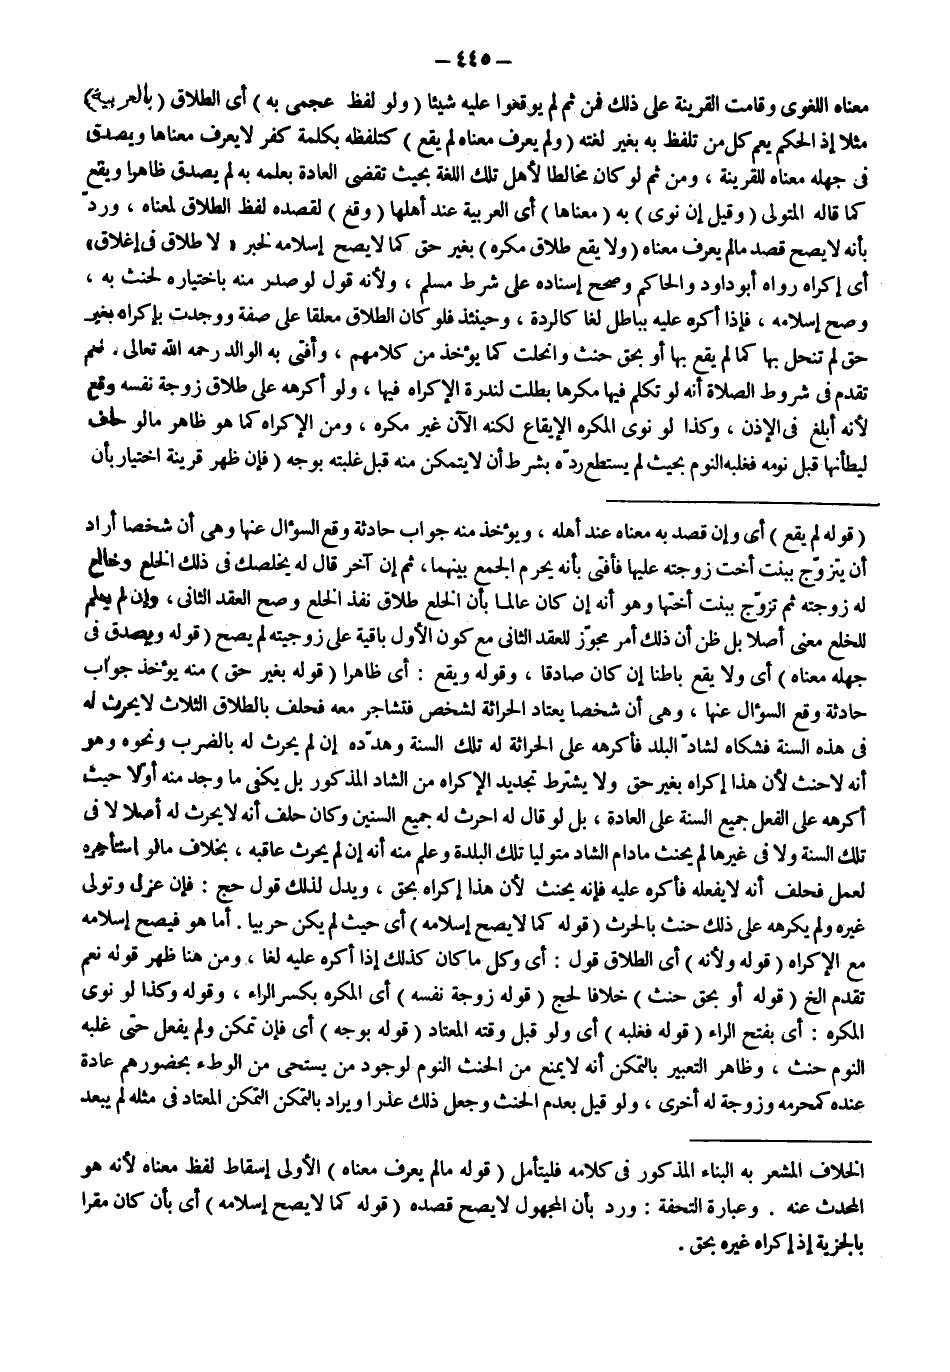 — ٤٤٥ —
معناه اللغوى وقامت القرينة على ذلك فمن ثم لم يوقعوا عليه شيئا ( ولو لفظ عجمى به ) أى الطلاق ( بالعربية )
مثلا إذ الحكم يعم كل من تلفظ به بغير لغته ( ولم يعرف معناه لم يقع ) كتلفظه بكلمة كفر لايعرف معناها ويصدق
فى جهله معناه للقرينة ، ومن ثم لو كان مخالطا لأهل تلك اللغة بحيث تقضى العادة بعلمه به لم يصدق ظاهرا ويقع
كما قاله المتولى ( وقيل إن نوى ) به ( معناها ) أى العربية عند أهلها ( وقع ) لقصده لفظ الطلاق لمعناه ، وردّ
بأنه لايصح قصد مالم يعرف معناه ( ولا يقع طلاق مكره ) بغير حق كما لايصح إسلامه لخبر « لا طلاق فى إغلاق»
أى إكراه رواه أبوداود والحاكم وصحح إسناده على شرط مسلم ، ولأنه قول لوصدر منه باختياره لحنث به ،
وصح إسلامه ، فإذا أكره عليه بباطل لغا كالردة ، وحينئذ فلو كان الطلاق معلقا على صفة ووجدت بإكراه بغير
حق لم تنحل بها كما لم يقع بها أو بحق حنث وانحلت كما يؤخذ من كلامهم ، وأفتى به الوالد رحمه الله تعالى . نعم
تقدم فى شروط الصلاة أنه لو تكلم فيها مكرها بطلت لندرة الإكراه فيها ، ولو أكرهه على طلاق زوجة نفسه وقع
لأنه أبلغ فى الإذن ، وكذا لو نوى المكره الإيقاع لكنه الآن غير مكره ، ومن الإكراه كما هو ظاهر مالو حلف
ليطأنها قبل نومه فغلبه النوم بحيث لم يستطع ردّه بشرط أن لايتمكن منه قبل غلبته بوجه ( فإن ظهر قرينة اختيار بأن
( قوله لم يقع ) أى وإن قصد به معناه عند أهله ، ويؤخذ منه جواب حادثة وقع السؤال عنها وهى أن شخصا أراد
أن يتزوّج ببنت أخت زوجته عليها فأفتى بأنه يحرم الجمع بينهما، ثم إن آخر قال له يخلصك فى ذلك الخلع وخالع
له زوجته ثم تزوّج ببنت أختها وهو أنه إن كان عالما بأن الخلع طلاق نفذ الخلع وصح العقد الثانى ، وإن لم يعلم
للخلع معنى أصلا بل ظن أن ذلك أمر مجوّز للعقد الثانى مع كون الأول باقية على زوجيته لم يصح ( قوله ويصدق فى
جهله معناه ) أى ولا يقع باطنا إن كان صادقا ، وقوله ويقع : أى ظاهرا ( قوله بغير حق ) منه يؤخذ جواب
حادثة وقع السؤال عنها ، وهى أن شخصا يعتاد الحراثة لشخص فتشاجر معه فحلف بالطلاق الثلاث لايحرث له
فى هذه السنة فشكاه لشادّ البلد فأكرهه على الحراثة له تلك السنة وهدّده إن لم يحرث له بالضرب ونحوه وهو
أنه لاحنث لأن هذا إكراه بغير حق ولا يشترط تجديد الإكراه من الشاد المذكور بل يكفى ما وجد منه أولا حيث
أكرهه على الفعل جميع السنة على العادة ، بل لو قال له احرث له جميع السنين وكان حلف أنه لايحرث له أصلا لا فى
تلك السنة ولا فى غيرها لم يحنث مادام الشاد متوليا تلك البلدة وعلم منه أنه إن لم يحرث عاقبه ، بخلاف مالو استأجره
لعمل فحلف أنه لايفعله فأكره عليه فإنه يحنث لأن هذا إكراه بحق ، ويدل لذلك قول حج : فإن عزل وتولى
غيره ولم يكرهه على ذلك حنث بالحرث ( قوله كما لايصح إسلامه ) أى حيث لم يكن حربيا . أما هو فيصح إسلامه
مع الإكراه ( قوله ولأنه ) أى الطلاق قول : أى وكل ماكان كذلك إذا أكره عليه لغا ، ومن هنا ظهر قوله نعم
تقدم الخ ( قوله أو بحق حنث ) خلافا لحج ( قوله زوجة نفسه ) أى المكره بكسر الراء ، وقوله وكذا لو نوى
المكره : أى بفتح الراء ( قوله فغلبه ) أى ولو قبل وقته المعتاد ( قوله بوجه ) أى فإن تمكن ولم يفعل حتى غلبه
النوم حنث ، وظاهر التعبير بالتمكن أنه لايمنع من الحنث النوم لوجود من يستحى من الوطء بحضورهم عادة
عنده كمحرمه وزوجة له أخرى ، ولو قيل بعدم الحنث وجعل ذلك عذرا ويراد بالتمكن التمكن المعتاد فى مثله لم يبعد
الخلاف المشعر به البناء المذكور فى كلامه فليتأمل ( قوله مالم يعرف معناه ) الأولى إسقاط لفظ معناه لأنه هو
المحدث عنه . وعبارة التحفة : ورد بأن المجهول لايصح قصده ( قوله كما لايصح إسلامه ) أى بأن كان مقرا
بالجزية إذ إكراه غيره بحق .